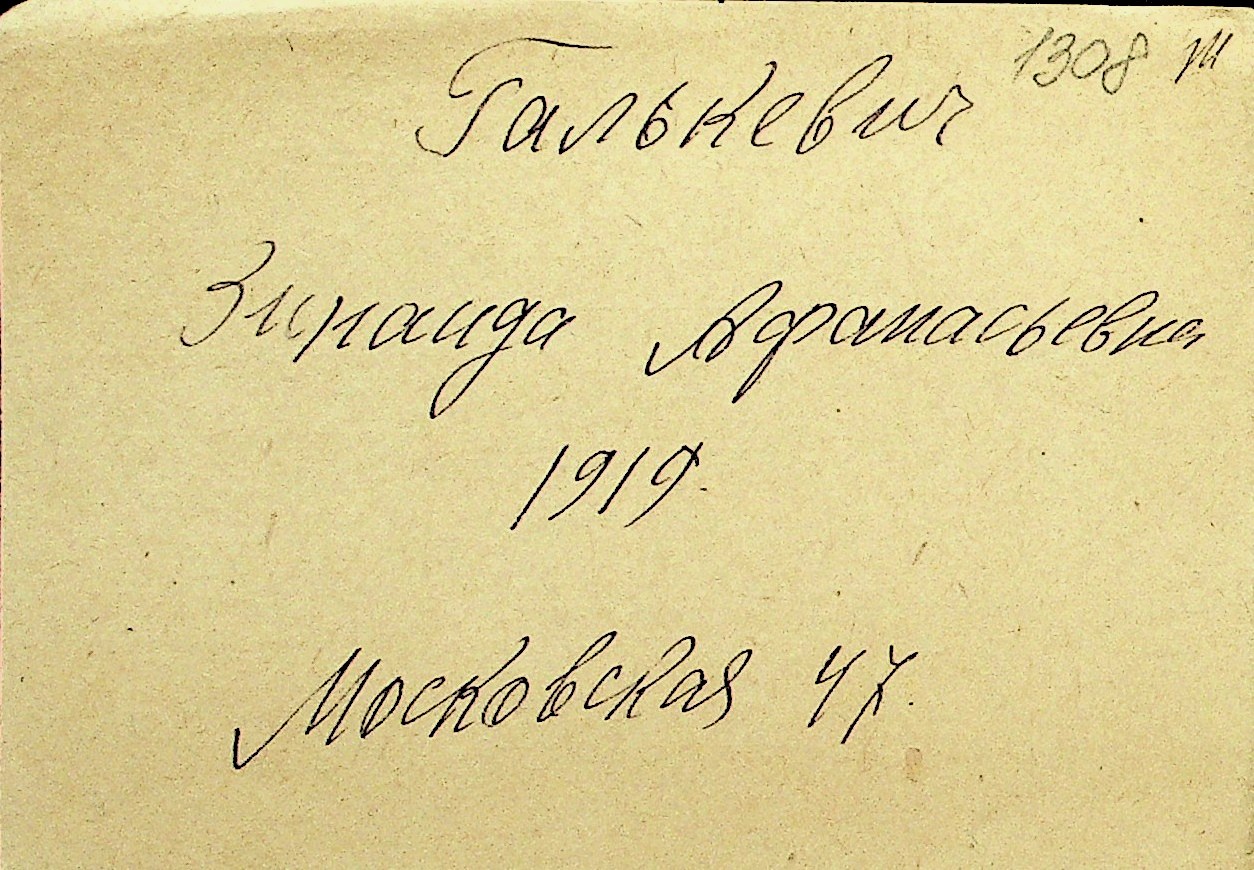 Галькевич 1308
Зинаида Афанасьевна
1919
Московская 47.